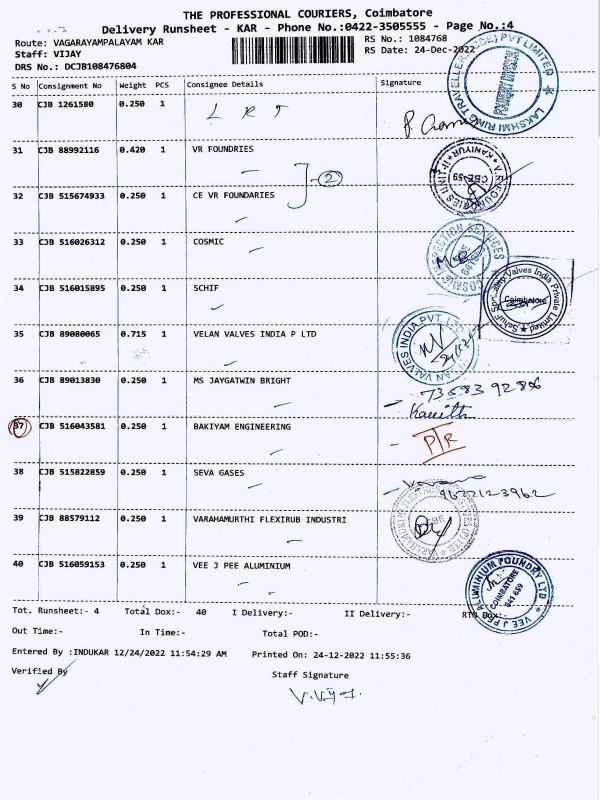 THE PROFESSIONAL COURIERS, Coimbatore
Delivery Runsheet - KAR - Phone No.:0422-3505555 - Page No.:4
Route: VAGARAYAMPALAYAM KAR RS No.: 1084768
Staff: VIJAY RS Date: 24-Dec-2022
DRS No.: DCJB108476804
S No Consignment No Weight PCS Consignee Details Signature
30 CJB 1261580 0.250 1 L R T
LAKSHMI RING TRAVELLERS (CBE) PVT LIMITED
31 CJB 88992116 0.420 1 VR FOUNDRIES
2
V.R. FOUNDRIES UNIT-II KANIYUR CBE-59
32 CJB 515674933 0.250 1 CE VR FOUNDARIES
33 CJB 516026312 0.250 1 COSMIC
INSPECTION SERVICES
34 CJB 516015895 0.250 1 SCHIF
Valves India Private Limited Coimbatore
35 CJB 89080065 0.715 1 VELAN VALVES INDIA P LTD
VELAN VALVES INDIA PVT. LTD
36 CJB 89013830 0.250 1 MS JAYGATWIN BRIGHT
Kavitha
37 CJB 516043581 0.250 1 BAKIYAM ENGINEERING
PTR
38 CJB 515822859 0.250 1 SEVA GASES
9677123962
39 CJB 88579112 0.250 1 VARAHAMURTHI FLEXIRUB INDUSTRI
40 CJB 516059153 0.250 1 VEE J PEE ALUMINIUM
VEE J PEE ALUMINIUM FOUNDRY LTD COIMBATORE 641 659
Tot. Runsheet:- 4 Total Dox:- 40 I Delivery:- II Delivery:- RTN Dox:-
Out Time:- In Time:- Total POD:-
Entered By :INDUKAR 12/24/2022 11:54:29 AM Printed On: 24-12-2022 11:55:36
Verified By Staff Signature